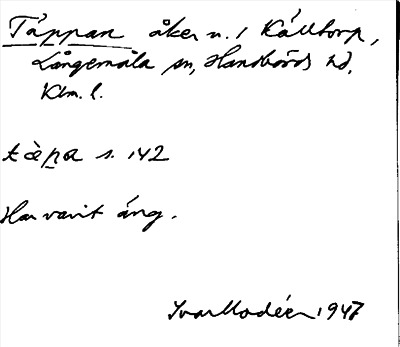 Täppan åker n. 1 Källtorp,
Långemåla sn, Handbörds hd.
Klm. l.
tàpa s. 142
Har varit äng.
Ivar Modéer 1947